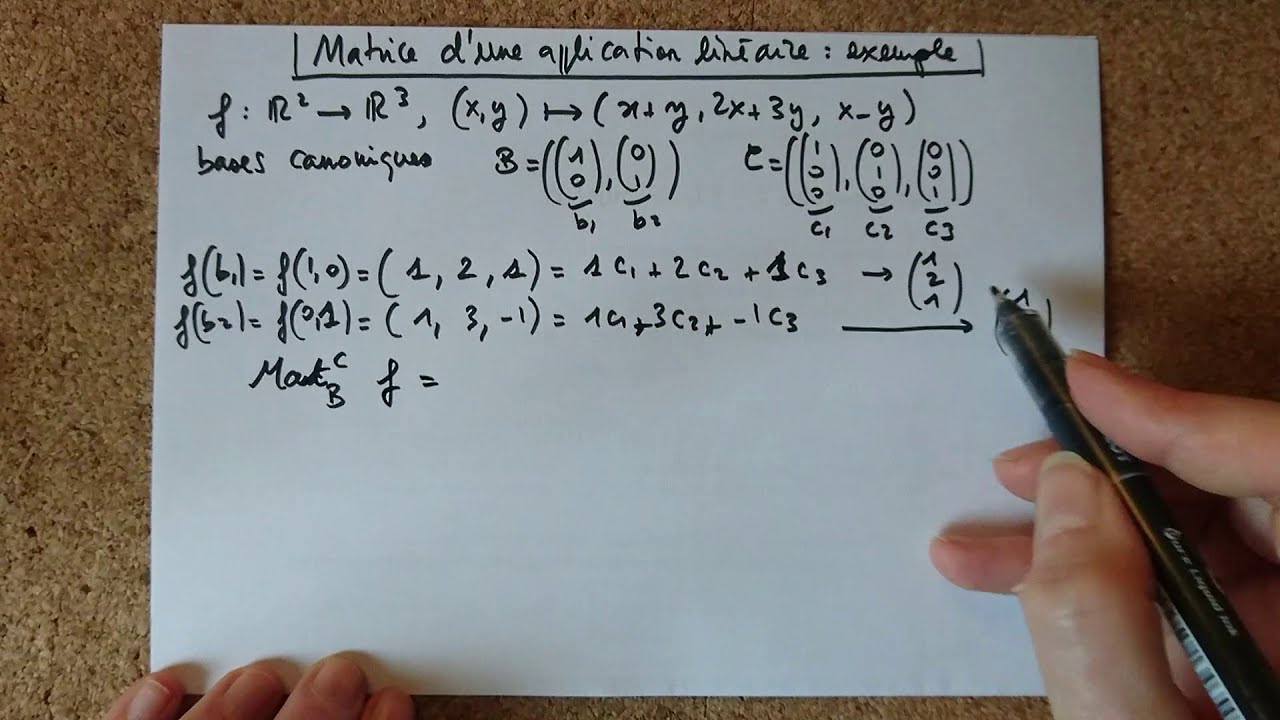 Matrice d'une application linéaire : exemple
f : ℝ² → ℝ³, (x,y) ↦ (x+y, 2x+3y, x-y)
bases canoniques B = ((1 0), (0 1)) C = ((1 0 0), (0 1 0), (0 0 1))
b₁ b₂ c₁ c₂ c₃
f(b₁) = f(1,0) = (1, 2, 1) = 1c₁ + 2c₂ + 1c₃ → (1 2 1)
f(b₂) = f(0,1) = (1, 3, -1) = 1c₁ + 3c₂ + -1c₃ → (1
Mat_B^C f =